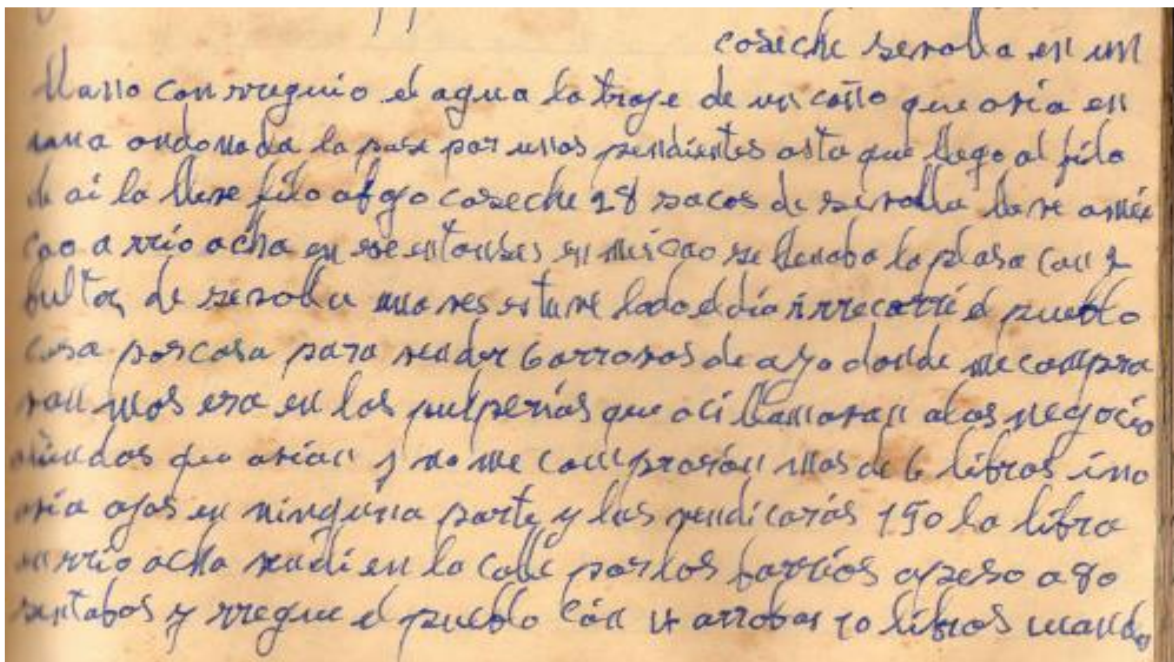 coseche sevolla en un
llano con rreguio el agua la traje de un caño que avia en
una ondonada la pase por unas pendientes asta que llego al filo
de ai la lleve filo abajo coseche 28 sacos de sevolla lleve a mai
cao a rrio acha en ese entonses en maicao se llenaba la plasa con 2
bultos de sevolla una ves estuve todo el dia i rrecorri el pueblo
casa por casa para vender 6 arrovas de ajo donde me compra
van mas era en las pulperias que aci llamavan a los negocios
que avian y no me compravan mas de 6 libras i no
avia ajos en ninguna parte y las vendi caras 150 la libra
en rrio acha vendi en la calle por los barrios a peso a 80
sentabos y rregue el pueblo con 14 arrobas 10 libras